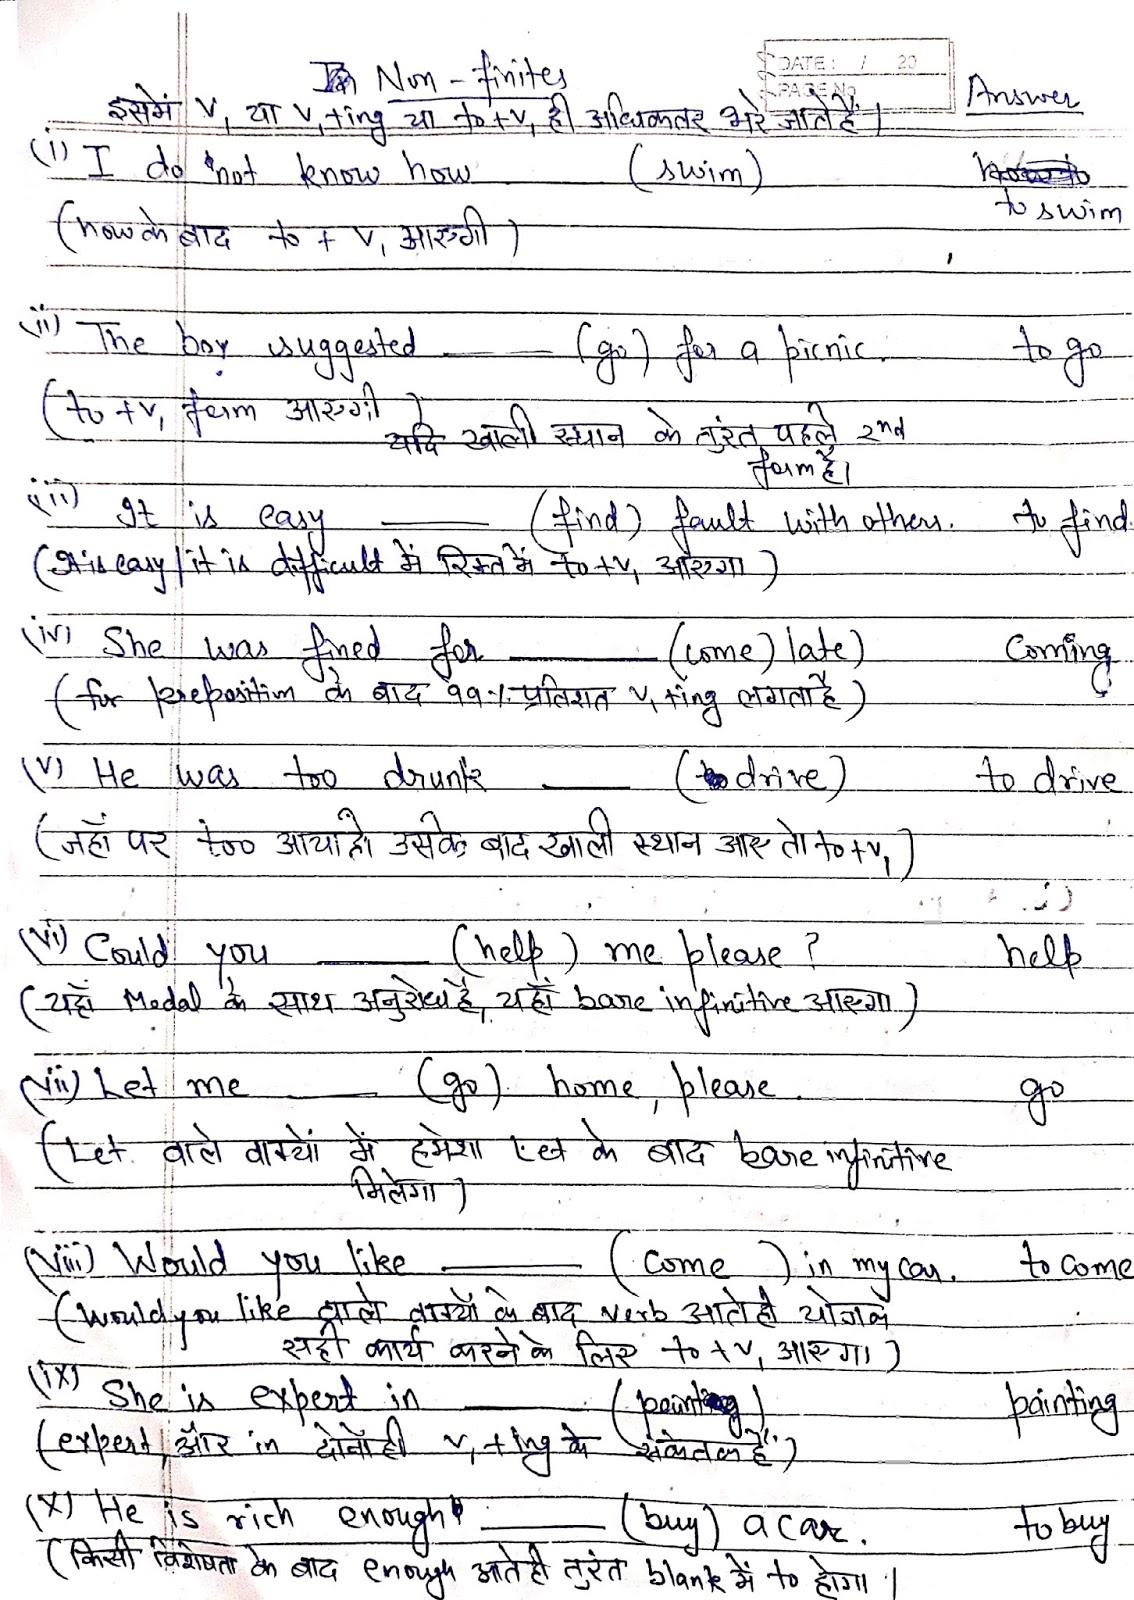 In Non-finites
DATE: / 20
PAGE No
Answer
इसमें V₁ या V₁+ing या to+V₁ ही अधिकतर भरे जाते हैं।
(i) I do not know how (swim) to swim
(how के बाद to + V₁ आएगी)
(ii) The boy suggested ____ (go) for a picnic. to go
(to +V₁ form आएगी)
यदि खाली स्थान के तुरंत पहले 2nd
form है।
(iii) It is easy ____ (find) fault with others. to find.
(It is easy/it is difficult में रिक्त में to +V₁ आएगा)
(iv) She was fined for ____ (come) late) Coming
(for preposition के बाद 99% प्रतिशत V₁+ing लगता है)
(v) He was too drunk ____ (drive) to drive
(जहाँ पर too आया हो उसके बाद खाली स्थान आए तो to+V₁)
(vi) Could you ____ (help) me please? help
(यहाँ Modal के साथ अनुरोध है, यहाँ bare infinitive आएगा)
(vii) Let me ____ (go) home, please. go
(Let वाले वाक्यों में हमेशा Let के बाद bare infinitive
मिलेगा)
(viii) Would you like ____ (come) in my car. to come
(Would you like वाले वाक्यों के बाद verb आते ही
सही कार्य करने के लिए to +V₁ आएगा)
(ix) She is expert in ____ (painting) painting
(expert, और in दोनों ही V₁+ing के संकेतक हैं)
(x) He is rich enough ____ (buy) a car. to buy
(किसी विशेषता के बाद enough आते ही तुरंत blank में to होगा।